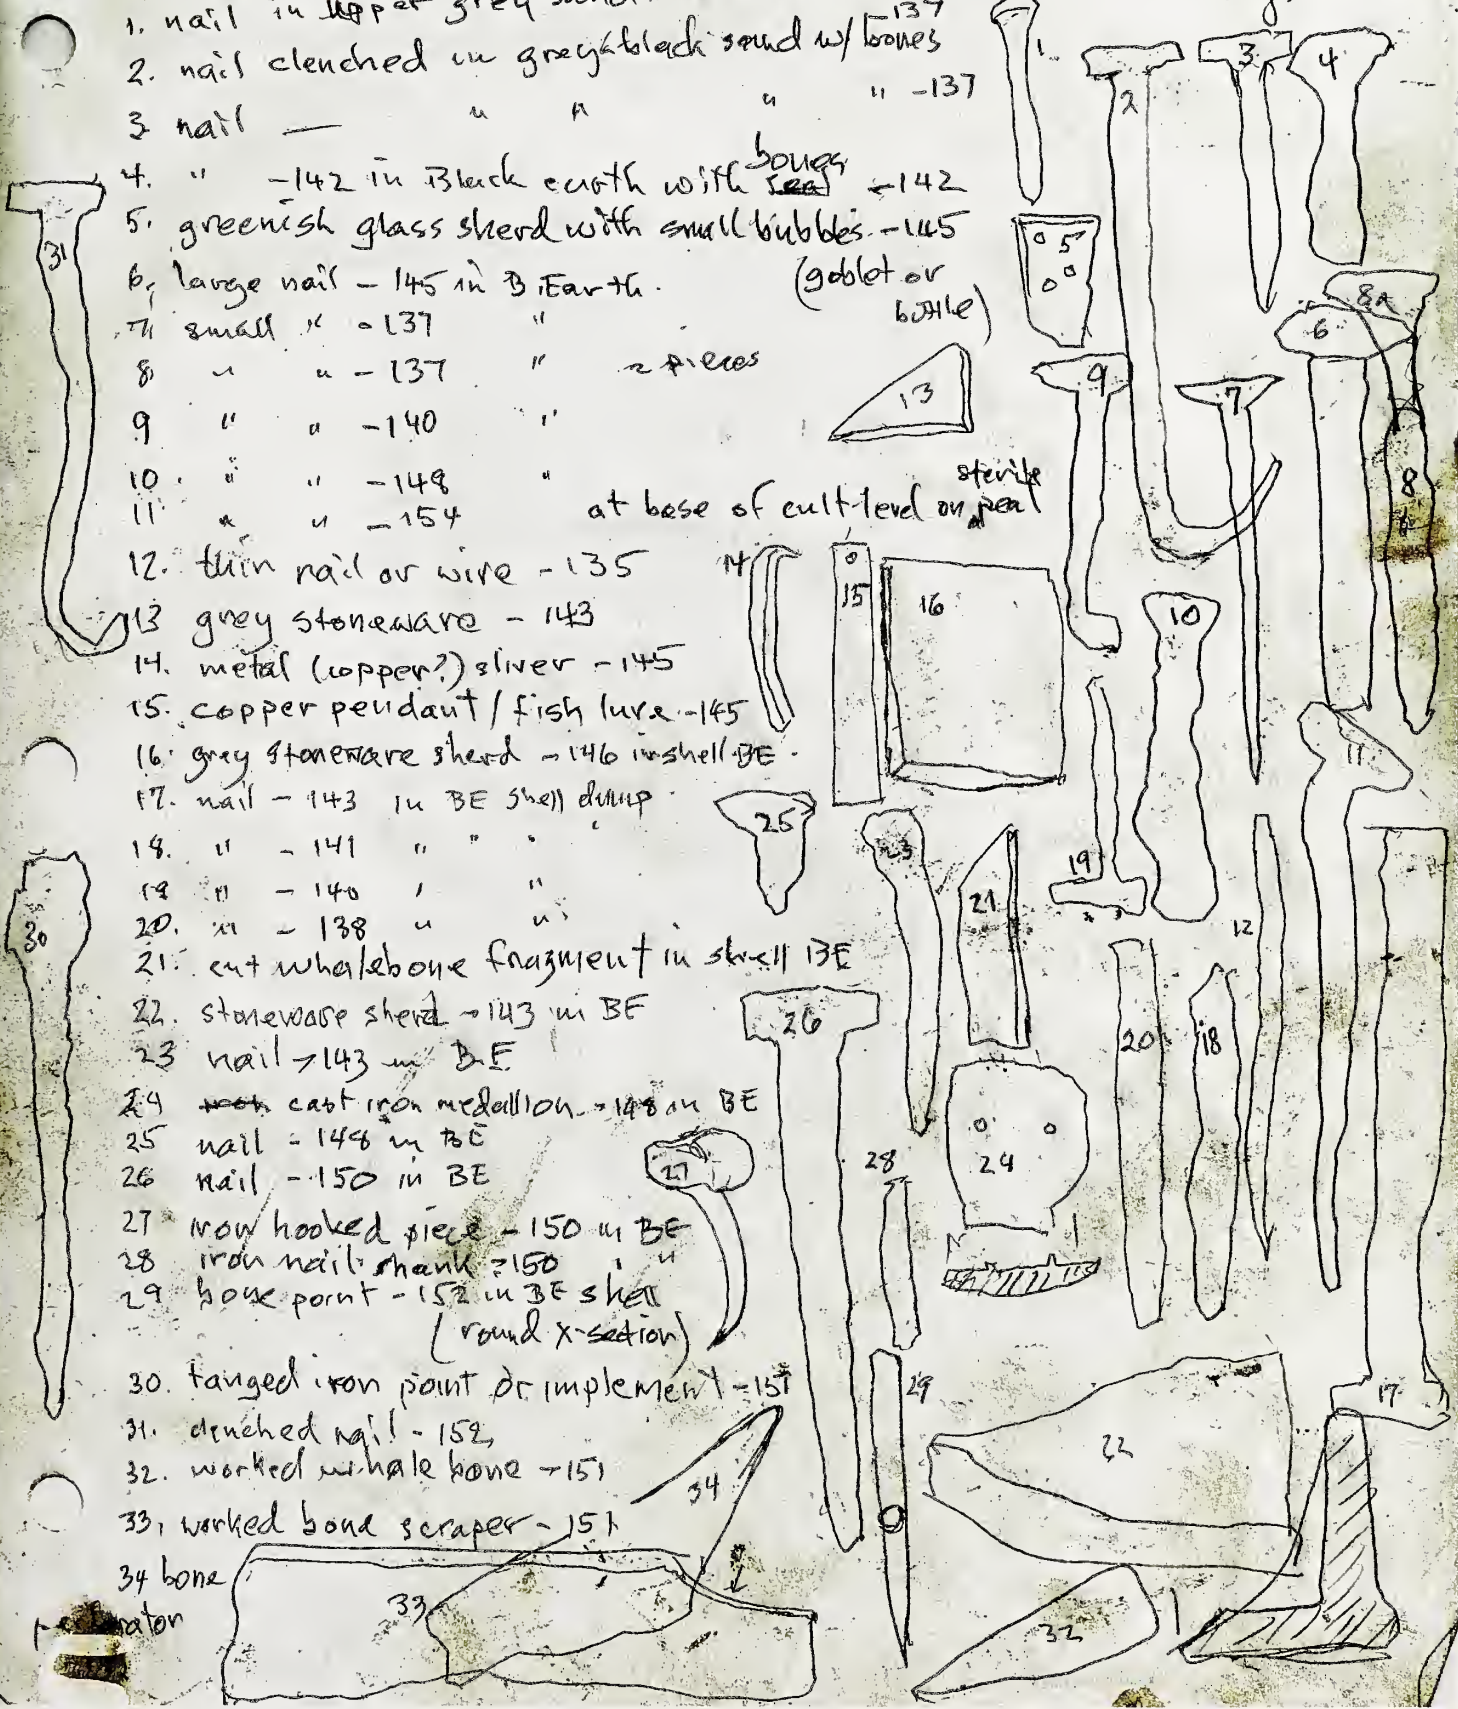 1. nail in upper grey sand
-137
2. nail clenched in grey & black sand w/ bones
3 nail — " " " " -137
bones
4. " -142 in Black earth with -142
5. greenish glass sherd with small bubbles -145
(goblet or
bottle)
6. large nail - 145 in B. Earth.
7. small " - 137 "
8. " " - 137 " 2 pieces
9 " " - 140 "
10. " " - 148 "
sterile
11 " " - 154 at base of cult-level on peat
12. thin nail or wire - 135
13 grey stoneware - 143
14. metal (copper?) sliver - 145
15. copper pendant / fish lure - 145
16. grey stoneware sherd - 146 in shell BE.
17. nail - 143 in BE shell dump
18. " - 141 " " "
19 " - 140 " "
20. " - 138 " "
21. cut whalebone fragment in shell BE
22. stoneware sherd - 143 in BE
23 nail - 143 in B.E
24 cast iron medallion - 148 in BE
25 nail - 148 in BE
26 nail - 150 in BE
27 iron hooked piece - 150 in BE
28 iron nail shank - 150 " "
29 bone point - 152 in BE shell
(round x-section)
30. tanged iron point or implement - 151
31. clenched nail - 152
32. worked whale bone - 151
33, worked bone scraper - 151
34 bone
perforator
1
2
3
4
31
5
8a
6
9
7
13
8
14
15
16
10
11
25
23
21
19
12
30
26
20
18
27
28
24
29
17
22
34
33
32